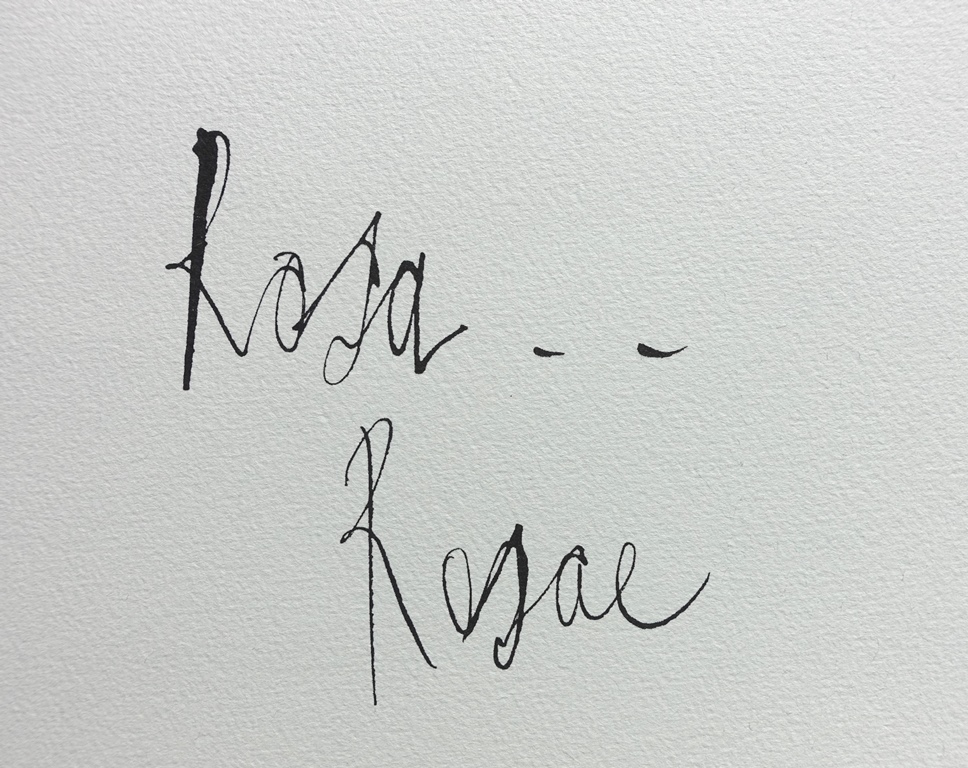 Rosa - -
Rosae